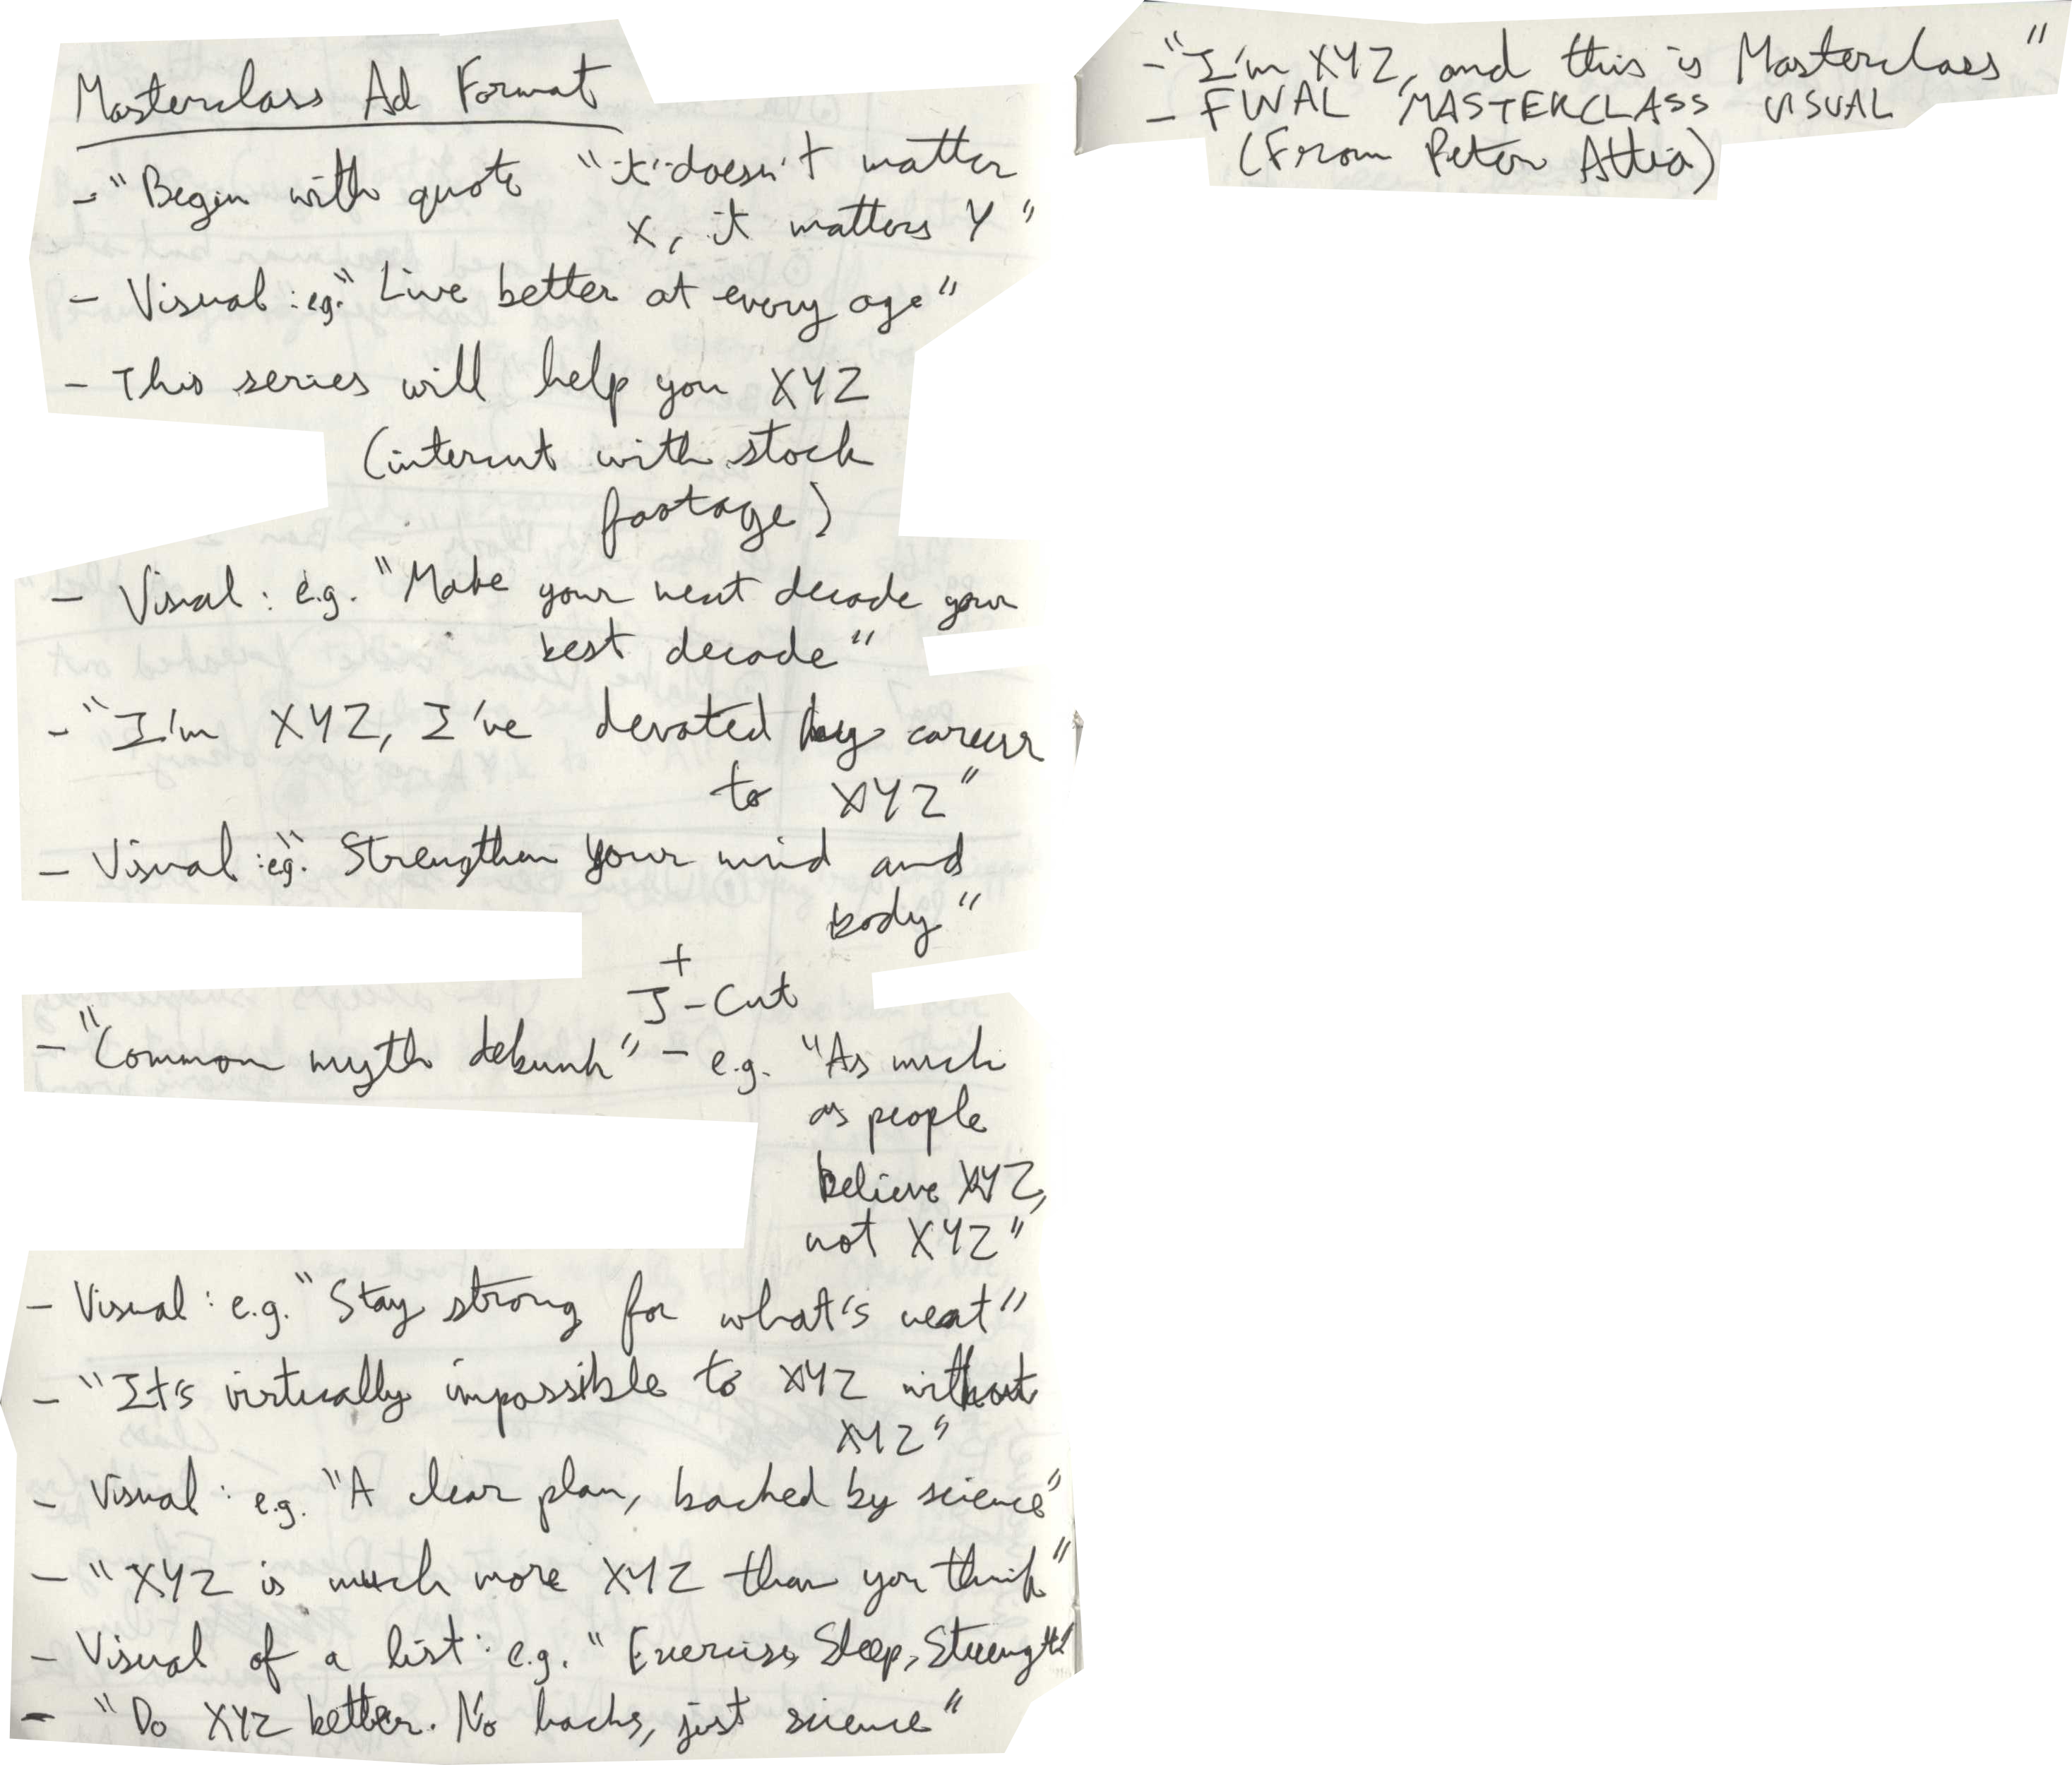 Masterclass Ad Format
- "Begin with quote "it doesn't matter
X, it matters Y"
- Visual: eg. "Live better at every age"
- This series will help you XYZ
(intercut with stock
footage)
- Visual: e.g. "Make your next decade your
best decade"
- "I'm XYZ, I've devoted my career
to XYZ"
- Visual: eg. "Strengthen your mind and
body"
+
J-Cut
- "Common myth debunk" - e.g. "As much
as people
believe XYZ,
not XYZ"
- Visual: e.g. "Stay strong for what's next"
- "It's virtually impossible to XYZ without
XYZ"
- Visual: e.g. "A clear plan, backed by science"
- "XYZ is much more XYZ than you think"
- Visual of a list: e.g. "Exercise, Sleep, Strength"
- "Do XYZ better. No hacks, just science"
- "I'm XYZ, and this is Masterclass"
- FINAL MASTERCLASS VISUAL
(From Peter Attia)